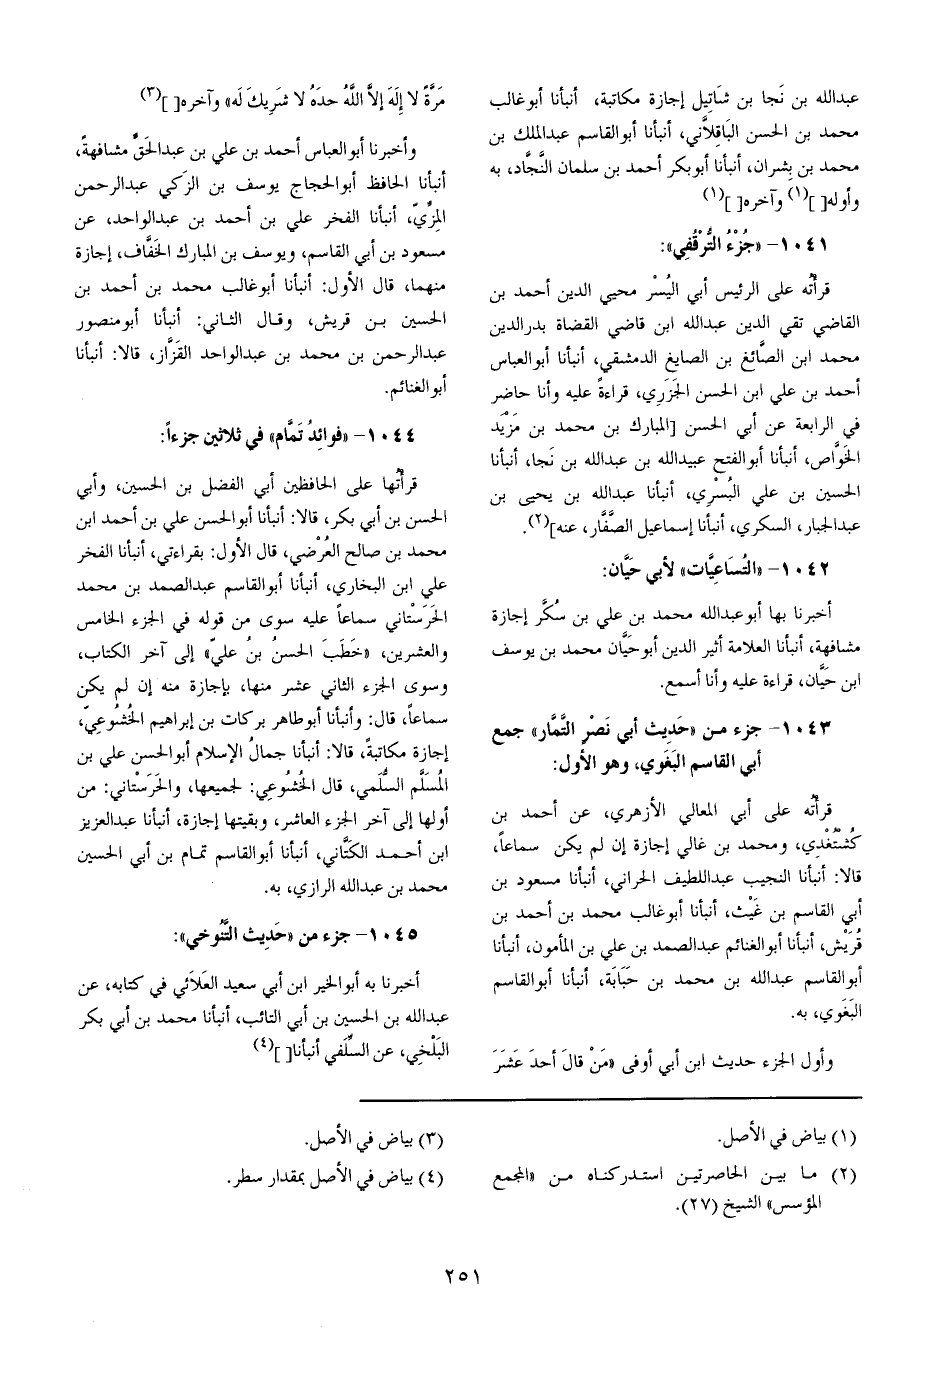 عبدالله بن نَجا بن شَاتِيل إجازة مكاتبة، أنبأنا أبوغالب
محمد بن الحسن البَاقِلاَّني، أنبأنا أبوالقاسم عبدالملك بن
محمد بن بِشران، أنبأنا أبوبكر أحمد بن سلمان النَّجَّاد، به
وأوله[ ](١) وآخره[ ](١)
١٠٤١- «جُزْءُ التُّرْقُفِي»:
قرأتُه على الرئيس أبي اليُسْر محيي الدين أحمد بن
القاضي تقي الدين عبدالله ابن قاضي القضاة بدرالدين
محمد ابن الصَّائغ بن الصايغ الدمشقي، أنبأنا أبوالعباس
أحمد بن علي ابن الحسن الجَزَري، قراءةً عليه وأنا حاضر
في الرابعة عن أبي الحسن [المبارك بن محمد بن مَزْيَد
الخَوَّاص، أنبأنا أبوالفتح عبيدالله بن عبدالله بن نَجا، أنبأنا
الحسين بن علي البُسْرِي، أنبأنا عبدالله بن يحيى بن
عبدالجبار، السكري، أنبأنا إسماعيل الصَّفَّار، عنه](٢).
١٠٤٢- «التُسَاعِيَّات» لأبي حَيَّان:
أخبرنا بها أبوعبدالله محمد بن علي بن سُكَّر إجازة
مشافهة، أنبأنا العلامة أثير الدين أبوحَيَّان محمد بن يوسف
ابن حَيَّان، قراءة عليه وأنا أسمع.
١٠٤٣- جزء من «حَدِيث أبي نَصْرِ التَّمَّار» جمع
أبي القاسم البَغَوي، وهو الأول:
قرأتُه على أبي المعالي الأزهري، عن أحمد بن
كُشْتُغْدِي، ومحمد بن غالي إجازة إن لم يكن سماعاً،
قالا: أنبأنا النجيب عبداللطيف الحراني، أنبأنا مسعود بن
أبي القاسم بن غَيْث، أنبأنا أبوغالب محمد بن أحمد بن
قُرَيْش، أنبأنا أبوالغنائم عبدالصمد بن علي بن المأمون، أنبأنا
أبوالقاسم عبدالله بن محمد بن حَبَابَة، أنبأنا أبوالقاسم
البَغَوي، به.
وأول الجزء حديث ابن أبي أوفى «مَنْ قالَ أحدَ عَشَرَ
مَرَّةً لا إِلَهَ إلاَّ اللَّهُ حدَهُ لا شَرِيكَ لَه» وآخره[ ](٣)
وأخبرنا أبوالعباس أحمد بن علي بن عبدالحَقِّ مشافهةً،
أنبأنا الحافظ أبوالحجاج يوسف بن الزَكي عبدالرحمن
المِزِّيّ، أنبأنا الفخر علي بن أحمد بن عبدالواحد، عن
مسعود بن أبي القاسم، ويوسف بن المبارك الخَفَّاف، إجازة
منهما، قال الأول: أنبأنا أبوغالب محمد بن أحمد بن
الحسين بن قريش، وقال الثاني: أنبأنا أبومنصور
عبدالرحمن بن محمد بن عبدالواحد القَزَّاز، قالا: أنبأنا
أبوالغنائم.
١٠٤٤- «فوائدُ تَمَّام» في ثلاثين جزءاً:
قرأتُها على الحافظين أبي الفضل بن الحسين، وأبي
الحسن بن أبي بكر، قالا: أنبأنا أبوالحسن علي بن أحمد ابن
محمد بن صالح العُرْضي، قال الأول: بقراءتي، أنبأنا الفخر
علي ابن البخاري، أنبأنا أبوالقاسم عبدالصمد بن محمد
الحَرَسْتاني سماعاً عليه سوى من قوله في الجزء الخامس
والعشرين، «خَطَبَ الحسنُ بنُ عليّ» إلى آخر الكتاب،
وسوى الجزء الثاني عشر منها، بإجازة منه إن لم يكن
سماعاً، قال: وأنبأنا أبوطاهر بركات بن إبراهيم الخُشُوعِيّ،
إجازة مكاتبةً، قالا: أنبأنا جمالُ الإسلام أبوالحسن علي بن
المُسَلَّم السُّلَمي، قال الخُشُوعي: لجميعها، والحَرَسْتاني: من
أولها إلى آخر الجزء العاشر، وبقيتها إجازة، أنبأنا عبدالعزيز
ابن أحمد الكَتَّاني، أنبأنا أبوالقاسم تمام بن أبي الحسين
محمد بن عبدالله الرازي، به.
١٠٤٥- جزء من «حَدِيث التَّنُوخي»:
أخبرنا به أبوالخير ابن أبي سعيد العَلاَئي في كتابه، عن
عبدالله بن الحسين بن أبي التائب، أنبأنا محمد بن أبي بكر
البَلْخِي، عن السِّلَفي أنبأنا[ ](٤)
(١) بياض في الأصل.
(٢) ما بين الحاصرتين استدركناه من «المجمع
المؤسس» الشيخ (٢٧).
(٣) بياض في الأصل.
(٤) بياض في الأصل بمقدار سطر.
٢٥١